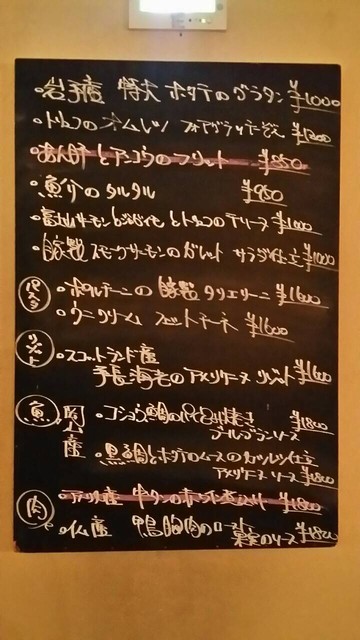 ・岩手産 特大 ホタテのグラタン ¥1000
・トリュフのオムレツ フォアグラソテーぞえ ¥1200
・あん肝とアンコウのフリット ¥950
・魚介のタルタル ¥950
・富士山サーモン とトリュフのテリーヌ ¥1000
・自家製スモークサーモンのガレット サラダ仕立 ¥1000
パスタ ・ポルチーニの自家製タリエリーニ ¥1600
・ウニクリーム フェットチーネ ¥1600
リゾット ・スコットランド産
手長海老のアメリケーヌ リゾット ¥1600
魚 岡山産 ・コショウ鯛のパイ包み焼き ¥1800
ブールブランソース
・黒鯛とホタテのムースの 仕立
アメリケーヌソース ¥1800
肉 ・アメリカ産 牛タンの赤ワイン煮込み ¥1800
・仏産 鴨胸肉のロースト
果実のソース ¥1800